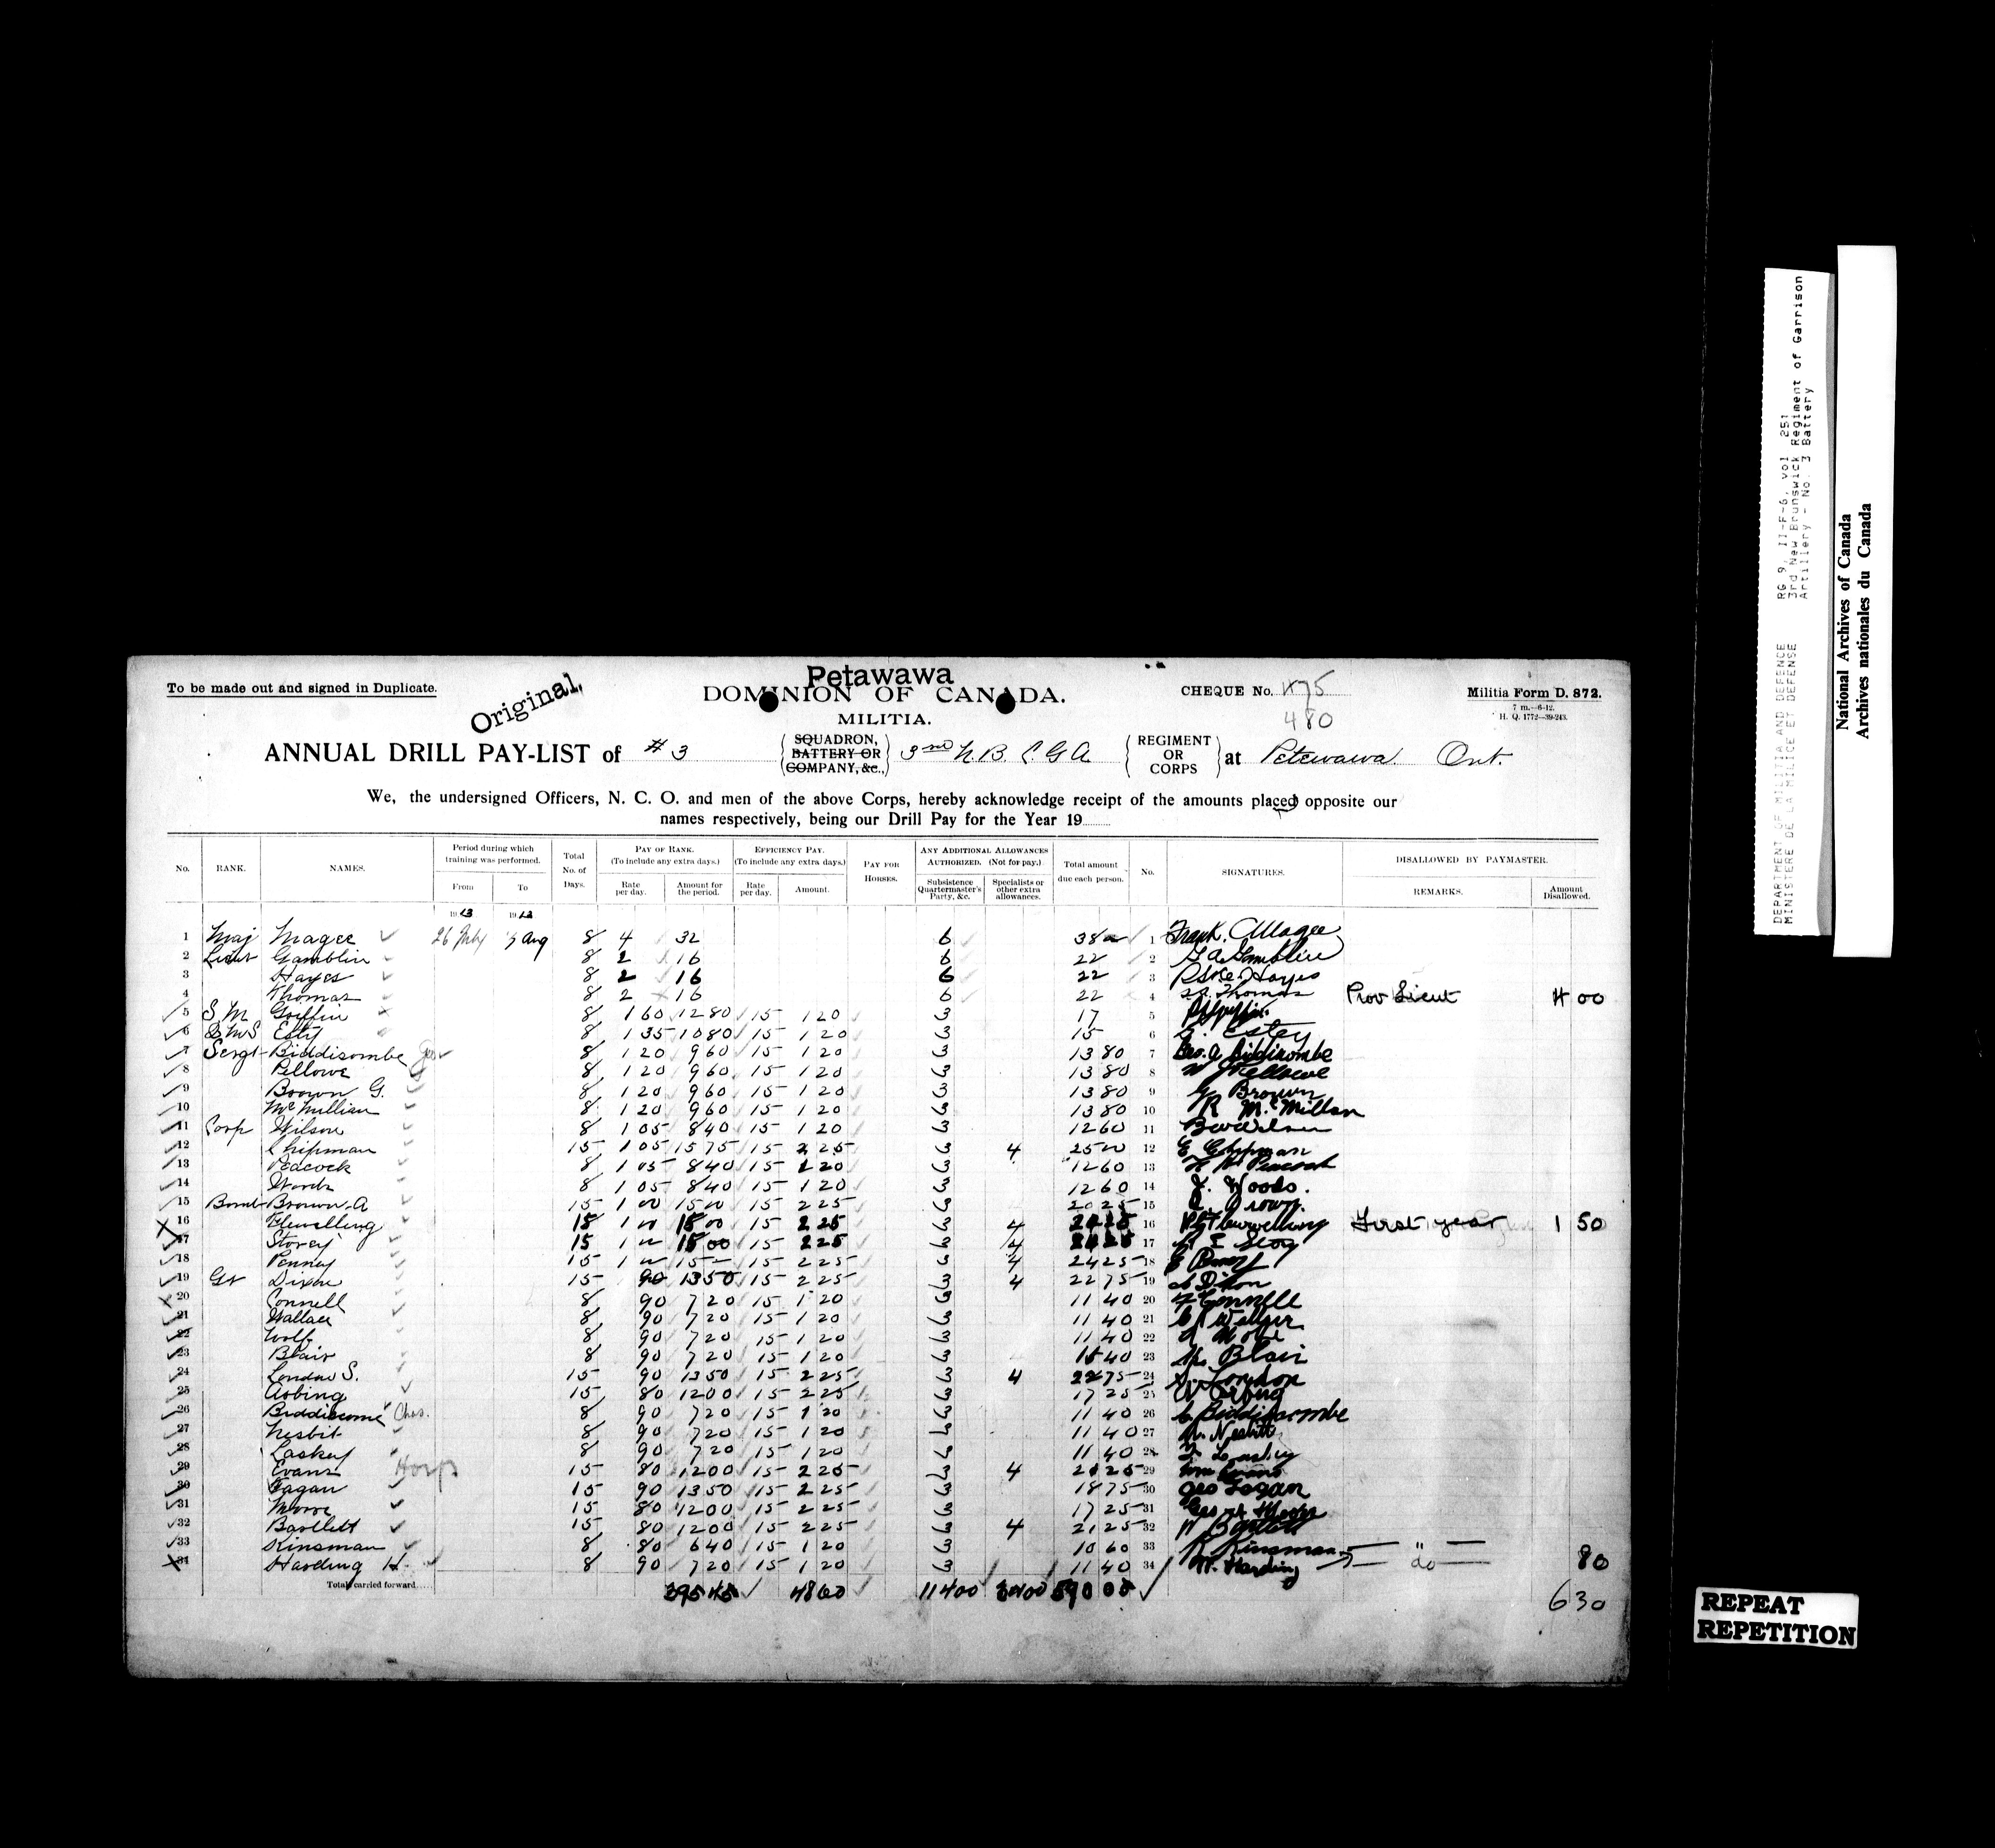 Petawawa
To be made out and signed in Duplicate.
Original
DOMINION OF CANADA.
CHEQUE No. 475
480
Militia Form D. 872.
7 m.--6-12.
H. Q. 1772--39-243.
MILITIA.
ANNUAL DRILL PAY-LIST of # 3 { SQUADRON, BATTERY OR COMPANY, &c., } 3rd N.B. C.G.A. { REGIMENT OR CORPS } at Petewawa Ont.
We, the undersigned Officers, N. C. O. and men of the above Corps, hereby acknowledge receipt of the amounts placed opposite our
names respectively, being our Drill Pay for the Year 19
No. RANK. NAMES. Period during which training was performed. From To Total No. of Days. PAY OF RANK. (To include any extra days.) Rate per day. Amount for the period. EFFICIENCY PAY. (To include any extra days.) Rate per day. Amount. PAY FOR HORSES. ANY ADDITIONAL ALLOWANCES AUTHORIZED. (Not for pay.) Subsistence Quartermaster's Party, &c. Specialists or other extra allowances. Total amount due each person. No. SIGNATURES. DISALLOWED BY PAYMASTER. REMARKS. Amount Disallowed.
1913 1913
1 Maj Magee 26 July Aug 8 4 32 6 38 1 Frank Magee
2 Lieut Gamblin 8 2 16 6 22 2 G A Gamblin
3 Hayes 8 2 16 6 22 3 Hayes
4 Thomas 8 2 16 6 22 4 Thomas Prov Lieut 4 00
5 S.M. Griffin 8 1 60 12 80 15 1 20 3 17 5 Griffin
6 Q M S Esty 8 1 35 10 80 15 1 20 3 15 6 Estey
7 Sergt Biddiscombe Geo 8 1 20 9 60 15 1 20 3 13 80 7 Geo. A Biddiscombe
8 Pellowe 8 1 20 9 60 15 1 20 3 13 80 8 W J Pellowe
9 Brown G. 8 1 20 9 60 15 1 20 3 13 80 9 G Brown
10 McMillian 8 1 20 9 60 15 1 20 3 13 80 10 R McMillan
11 Corp Wilson 8 1 05 8 40 15 1 20 3 12 60 11 Wilson
12 Chipman 15 1 05 15 75 15 2 25 3 4 25 00 12 E Chipman
13 Peacock 8 1 05 8 40 15 1 20 3 12 60 13 Peacock
14 Woods 8 1 05 8 40 15 1 20 3 12 60 14 J. Woods.
15 Bomb Brown A 15 1 00 15 00 15 2 25 3 20 25 15 A. Brown.
16 Flewelling 15 1 00 15 00 15 2 25 3 4 24 25 16 Flewwelling First year 1 50
17 Storey 15 1 00 15 00 15 2 25 3 4 24 25 17
18 Penney 15 1 00 15 15 2 25 3 4 24 25 18
19 Gr Dixon 15 90 13 50 15 2 25 3 4 22 75 19 Dixon
20 Connell 8 90 7 20 15 1 20 3 11 40 20 Connell
21 Wallace 8 90 7 20 15 1 20 3 11 40 21
22 Wolfe 8 90 7 20 15 1 20 3 11 40 22
23 Blair 8 90 7 20 15 1 20 3 11 40 23 Blair
24 London S. 15 90 13 50 15 2 25 3 4 22 75 24 S. London
25 Arbing 15 80 12 00 15 2 25 3 17 25 25 Arbing
26 Biddiscome Chas. 8 90 7 20 15 1 20 3 11 40 26 C. Biddiscombe
27 Nesbit 8 90 7 20 15 1 20 3 11 40 27 Nesbitt
28 Laskey 8 90 7 20 15 1 20 3 11 40 28 Laskey
29 Evans Hosp 15 80 12 00 15 2 25 3 4 21 25 29 Wm Evans
30 Fagan 15 90 13 50 15 2 25 3 18 75 30 Geo Fagan
31 Moore 15 80 12 00 15 2 25 3 17 25 31 Moore
32 Bartlett 15 80 12 00 15 2 25 3 4 21 25 32 Bartlett
33 Kinsman 8 80 6 40 15 1 20 3 10 60 33 R Kinsman "
34 Harding H. 8 90 7 20 15 1 20 3 11 40 34 H. Harding do 80
Total carried forward 395 45 48 60 114 00 590 05 6 30
DEPARTMENT OF MILITIA AND DEFENCE
MINISTERE DE LA MILICE ET DEFENSE
RG 9, II-F-6, vol 251
3rd New Brunswick Regiment of Garrison
Artillery - No. 3 Battery
National Archives of Canada
Archives nationales du Canada
REPEAT
REPETITION